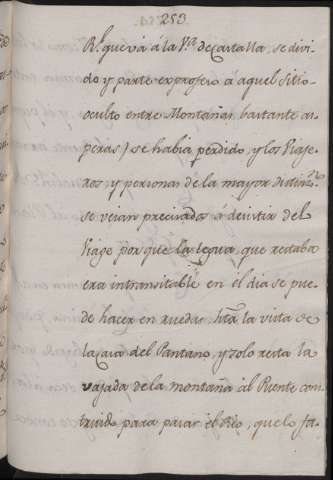 259.
R.l que vá á la V.a de Castalla, se divi-
do y parte ex profeso á aquel sitio
oculto entre Montañas bastante as
peras) se habia perdido, y los Viaje-
ros, y personas de la mayor distinc.n
se veian precisados á desistir del
Viage por que la legua, que restaba
era intransitable en el dia se pue-
de hacer en ruedas hta la vista de
la Casa del Pantano, y solo resta la
vajada de la montaña al Puente cons
truido para pasar el Rio, que lo fa-